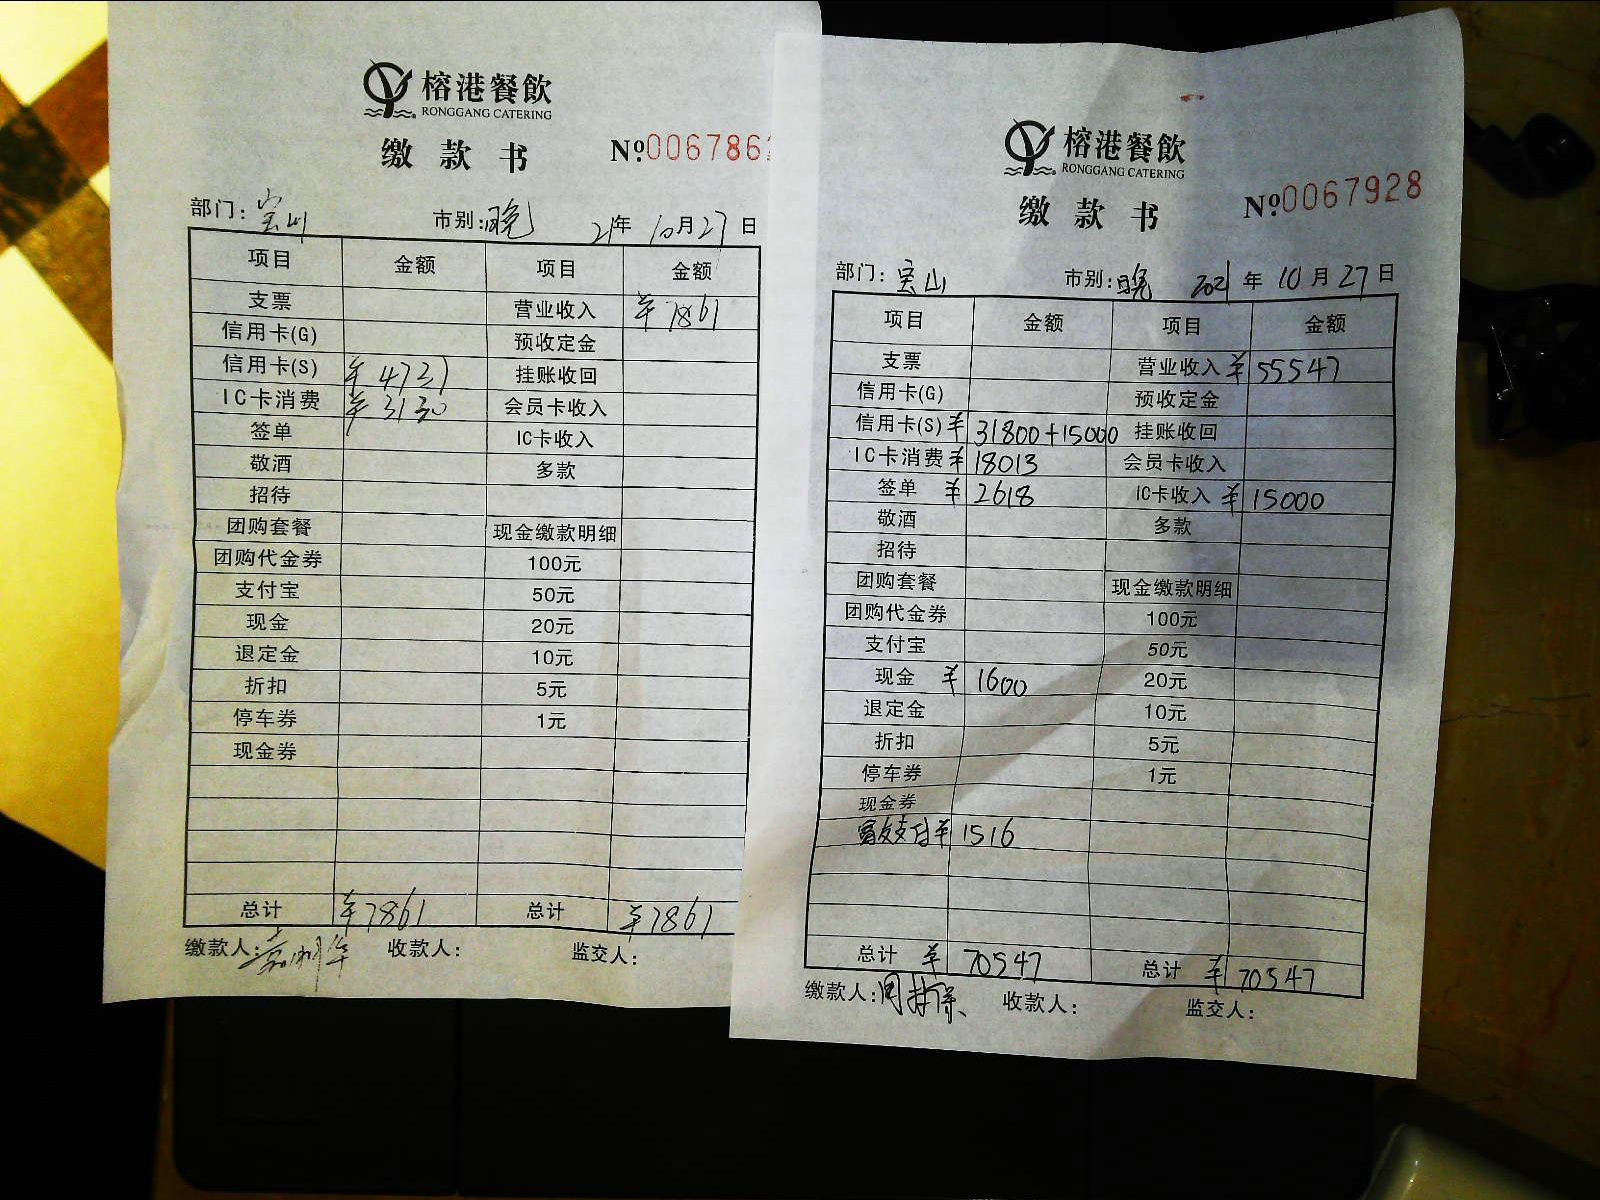 榕港餐飲
RONGGANG CATERING
缴款书 №006786
部门: 宝山 市别: 晚 21年 10月27日
项目 金额 项目 金额
支票 营业收入 ¥7861
信用卡(G) 预收定金
信用卡(S) ¥4731 挂账收回
IC卡消费 ¥3130 会员卡收入
签单 IC卡收入
敬酒 多款
招待
团购套餐 现金缴款明细
团购代金券 100元
支付宝 50元
现金 20元
退定金 10元
折扣 5元
停车券 1元
现金券
总计 ¥7861 总计 ¥7861
缴款人: 收款人: 监交人:
榕港餐飲
RONGGANG CATERING
缴款书 №0067928
部门: 宝山 市别: 晚 2021年 10月27日
项目 金额 项目 金额
支票 营业收入 ¥55547
信用卡(G) 预收定金
信用卡(S) ¥31800+15000 挂账收回
IC卡消费 ¥18013 会员卡收入
签单 ¥2618 IC卡收入 ¥15000
敬酒 多款
招待
团购套餐 现金缴款明细
团购代金券 100元
支付宝 50元
现金 ¥1600 20元
退定金 10元
折扣 5元
停车券 1元
现金券
支付 ¥1516
总计 ¥70547 总计 ¥70547
缴款人: 周 收款人: 监交人: